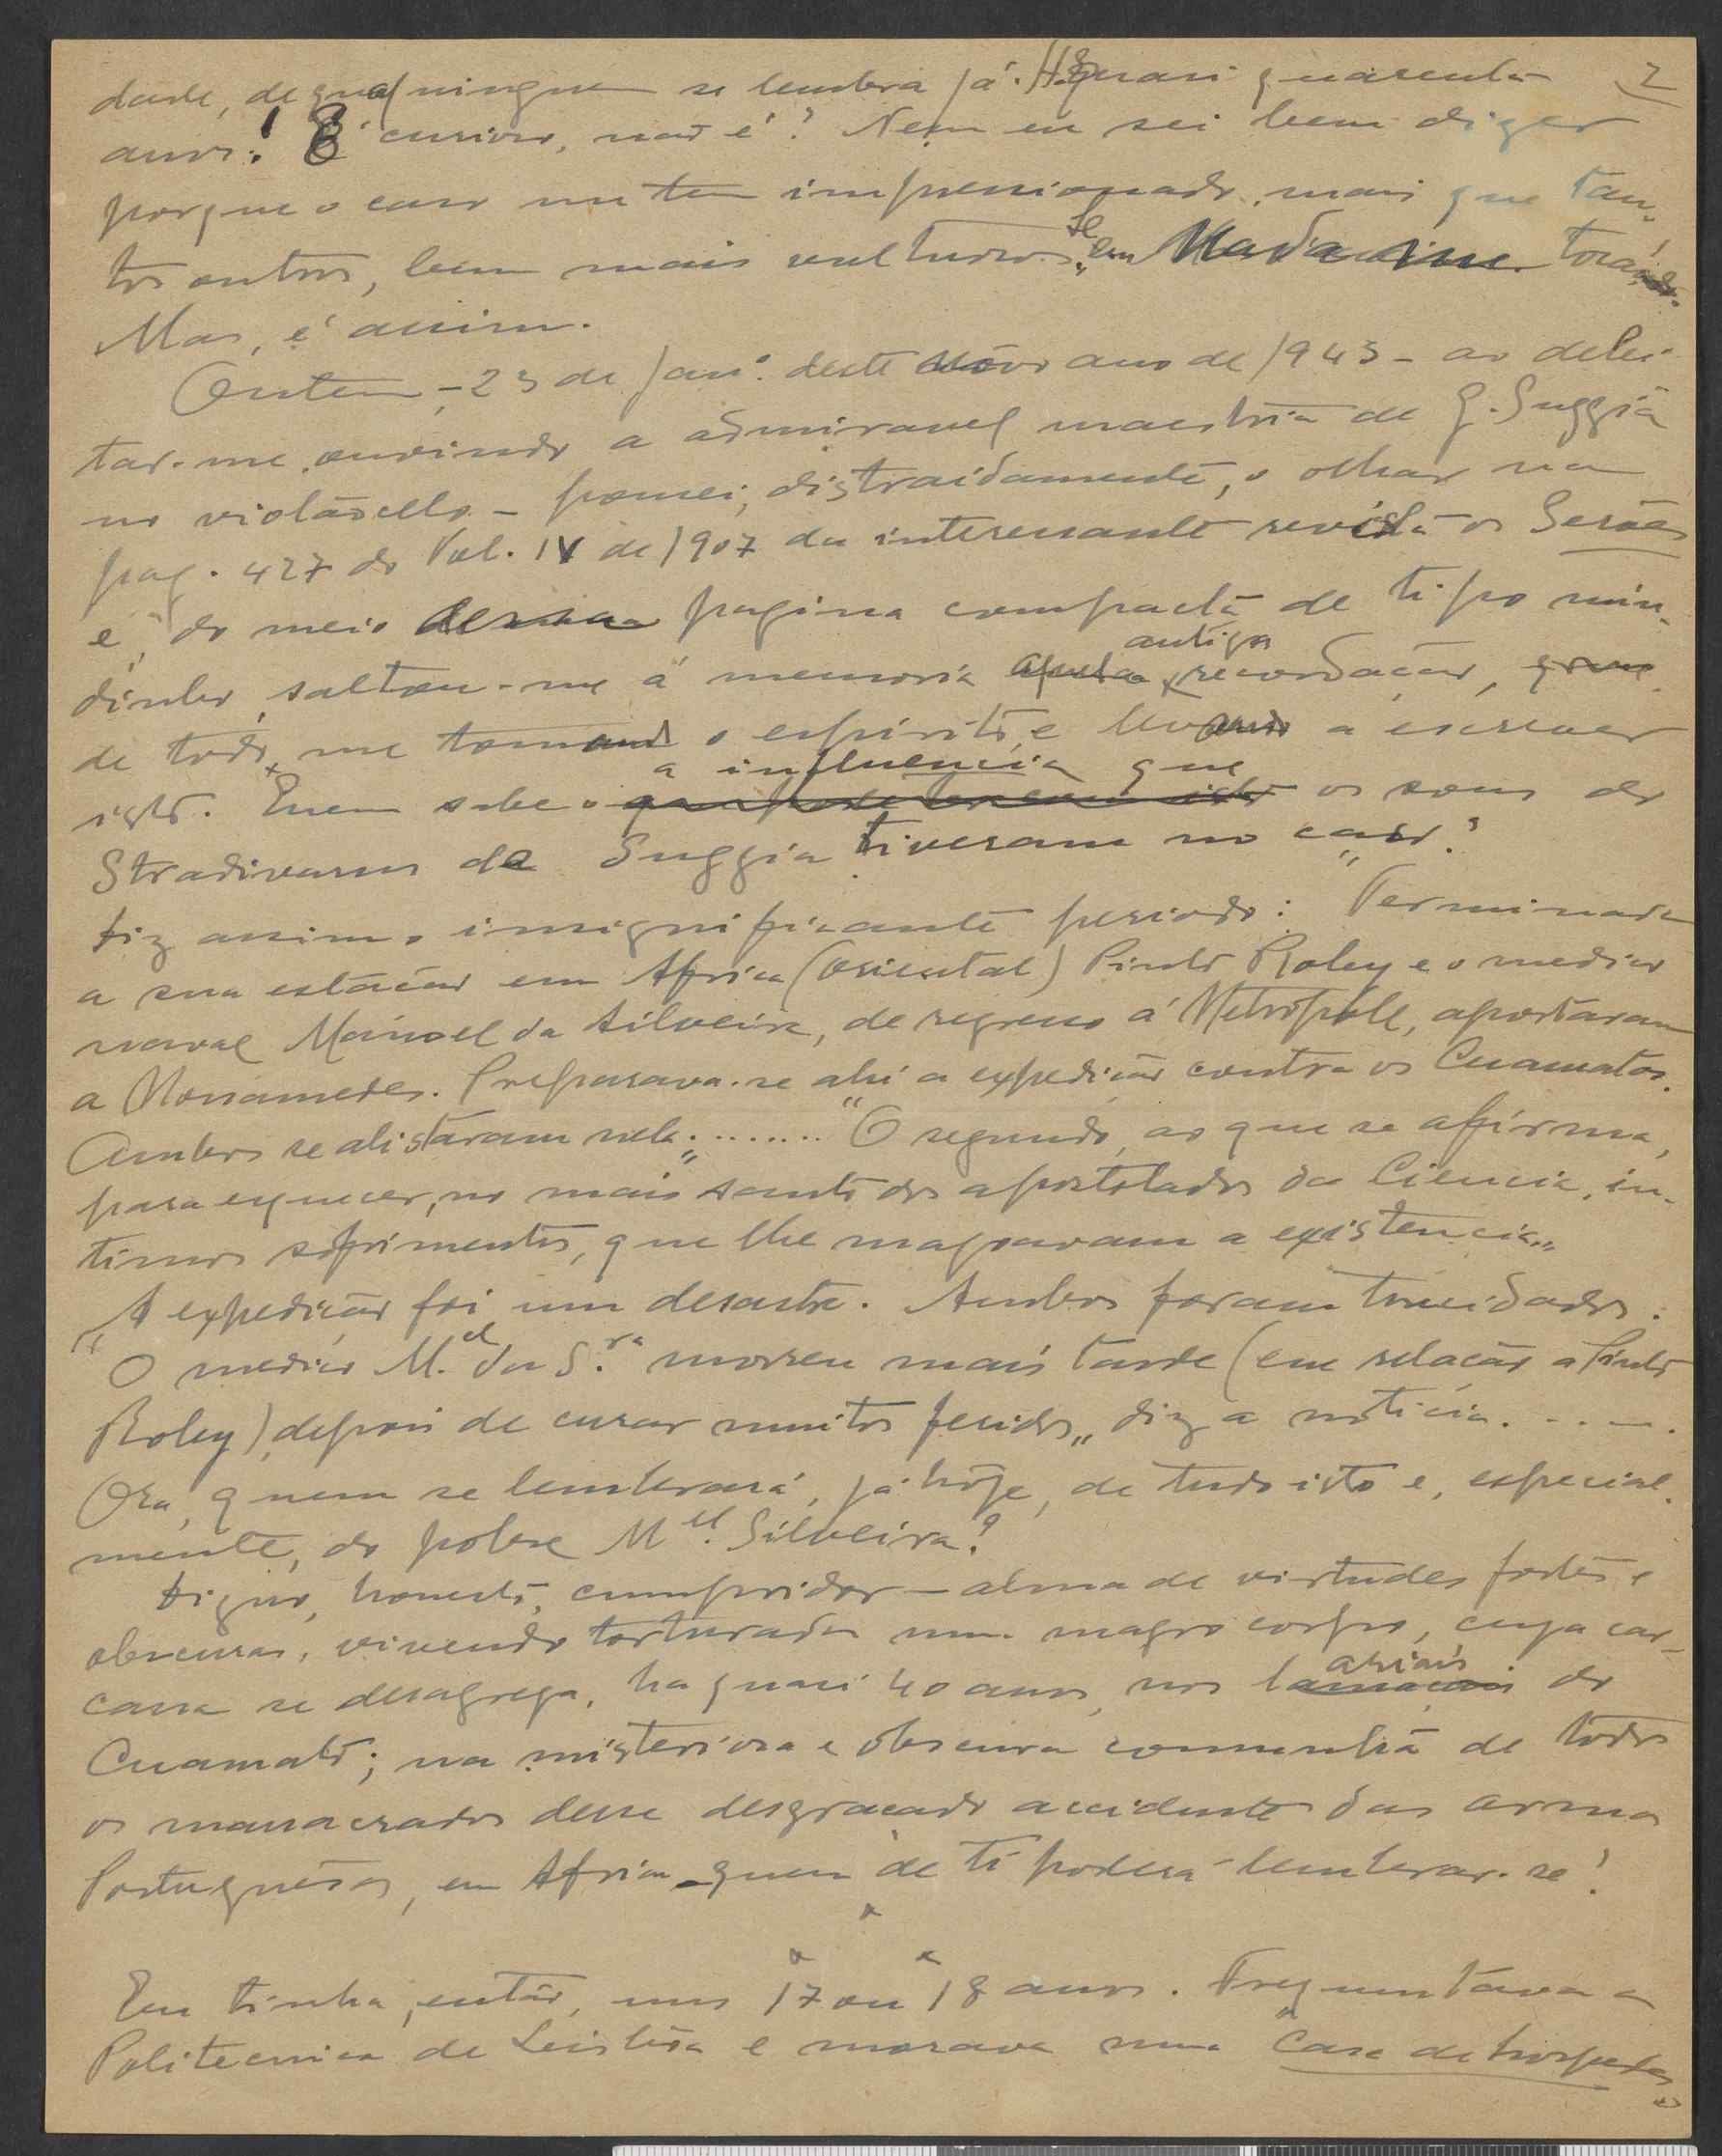 dade, de que ninguem se lembra já. Há quasi quarenta 2
anos! É curioso, não é? Nem eu sei bem dizer
porque o caso me tem impressionado, mais que tan-
tos outros, bem mais vultuosos
Mas, é assim.
Ontem - 23 de Janº. deste novo ano de 1943 - ao delei-
tar-me, ouvindo a admiravel maestria de G. Suggia
no violôncello - pousei, distraídamente, o olhar na
pag. 427 do Vol. IV de 1907 da interessante revista os Serões
e, do meio dessa pagina compacta de tipo miu-
dinho, saltou-me á memoria antiga recordação, que
de todo me tomando o espirito, e levando a escrever
isto. Quem sabe a influencia que os sons do
Stradivarius da Suggia tiveram no caso?
Diz assim o insignificante periodo: "Terminada
a sua estação em Africa (Oriental) Pinto Roley e o medico
naval Manoel da Silveira, de regresso á Metrópole, aportaram
a Mossamedes. Preparava-se ahi a expedição contra os Cuamatos.
Ambos se alistaram nela„........ "O segundo, ao que se afirma,
para esquecer, no mais santo dos apostolados da Ciencia, in-
timos sofrimentos, que lhe magoavam a existencia„
"A expedição foi um desastre. Ambos foram trucidados.
O medico M.el da S.ra morreu mais tarde (em relação a Pinto
Roley), depois de curar muitos feridos„ diz a noticia. . . — .
Ora, quem se lembrará, já hoje, de tudo isto e, especial-
mente, do pobre M.el Silveira?
Digno, honesto, cumpridor - alma de virtudes fortes e
obscuras, vivendo torturada num magro corpo, cuja car-
cassa se desagrega, ha quasi 40 anos, nos areiais do
Cuamato; na misteriosa e obscura communhã de todos
os massacrados desse desgraçado accidente das armas
Portuguêsas, em Africa - quem de ti poderá lembrar-se!
x
x x
Eu tinha, então, uns 17 ou 18 anos. Frequentava a
Politecnica de Lisbôa e morava numa "Casa de hospedes„